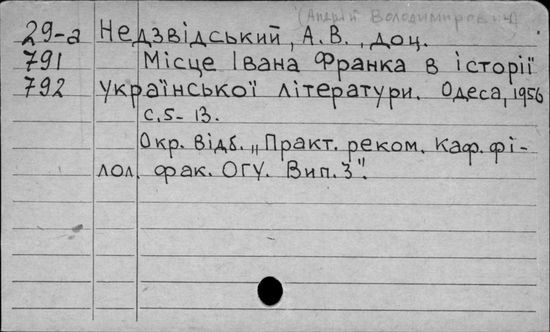 (Андрій Володимирович)
29-а Недзвідський, А.В., доц.
791 Місце Івана Франка в історії
792 української літератури. Одеса, 1956
с. 5-13.
Окр. відб. „Практ. реком. Каф. фі-
лол. фак. ОГУ. Вип. 3".